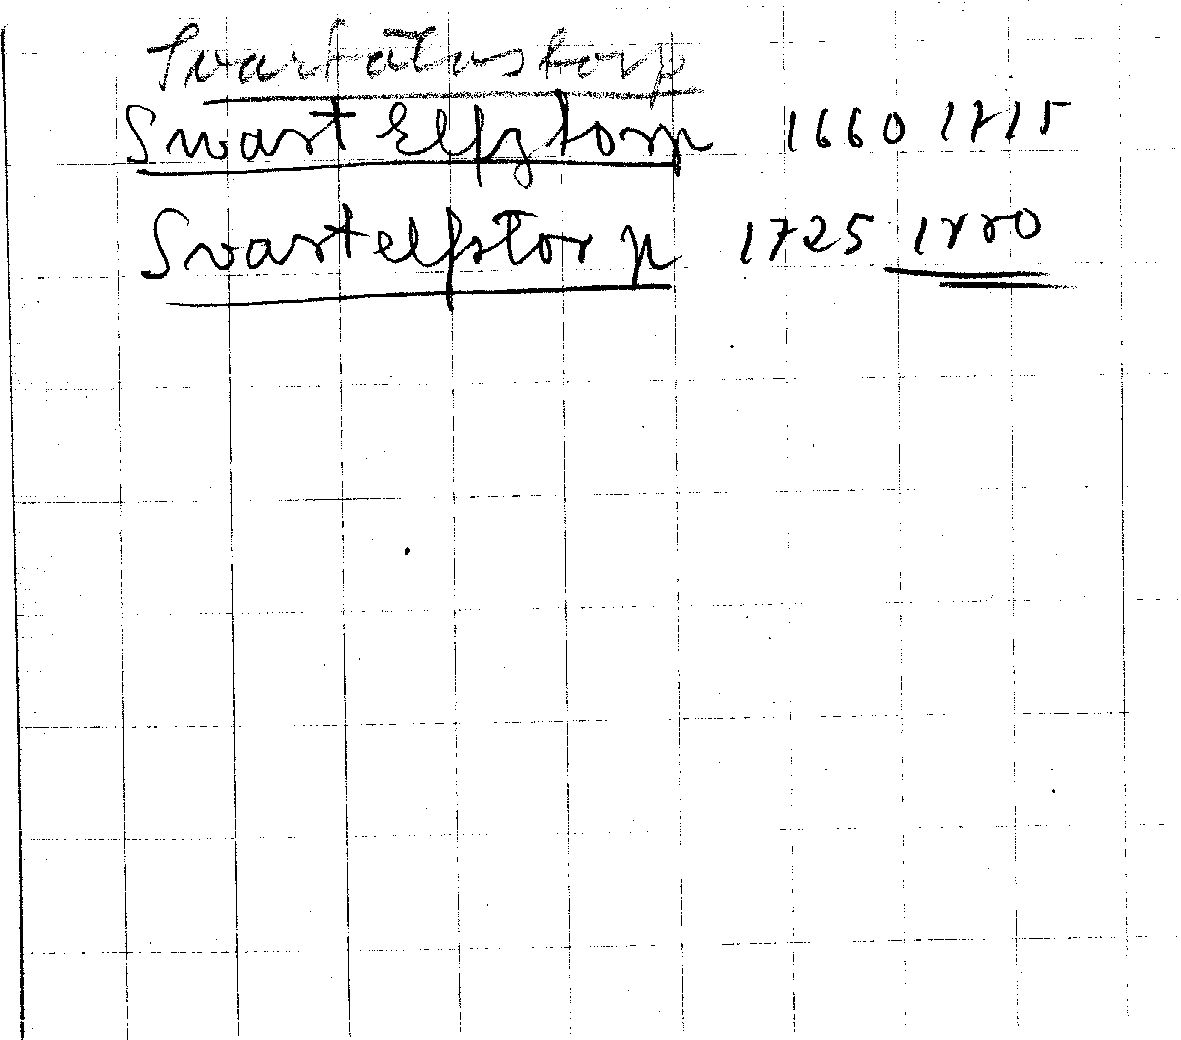 Svartälvstorp
Swart Elfztorp 1660 1715
Svartelfstorp 1725